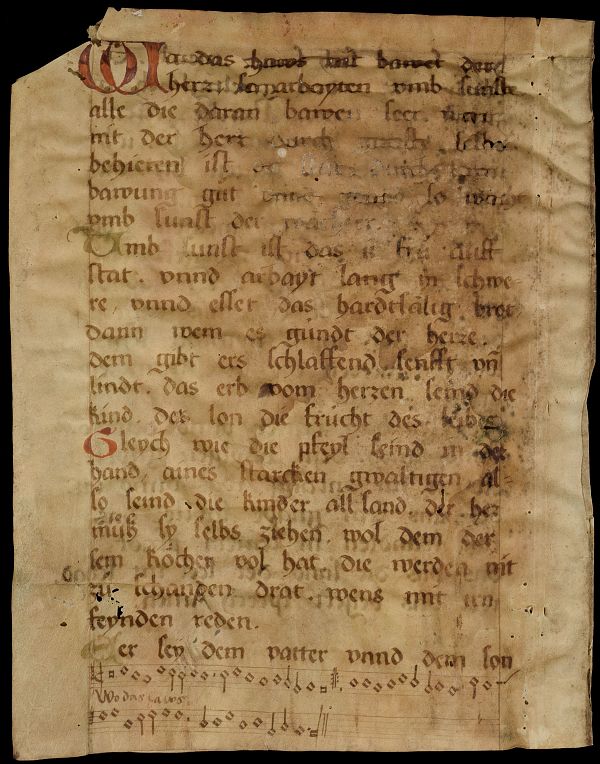 Wo das haws nit bawet der
herr so arbayten vmb sunst
alle die daran bawen seer
nit der herr durch selbs
behieten ist
bawung gut so wacht
vmb sunst der wachter
Vmb sunst ist das ir frü auff
stat. vnnd arbayt lang in schwe-
re, vnnd esset das hardtsälig brot
dann wem es gündt der herre.
dem gibt ers schlaffend, senfft vñ
lindt. das erb vom herren seind die
kind. der lon die frücht des leibes
Gleych wie die pfeyl seind in der
hand aines starcken gwaltigen al-
so seind die kinder all sand. der her
müß sy selbs ziehen. wol dem der
sein köcher vol hat. die werden nit
zů schanden drat. wens mit irn
feynden reden.
Eer sey dem vatter vnnd dem son
Wo das haws